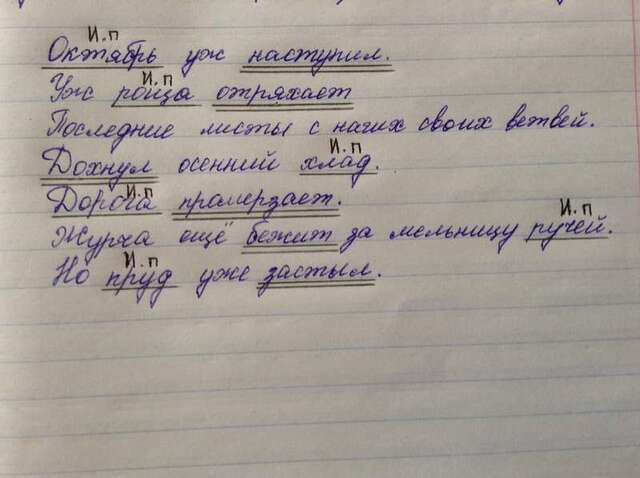 И.п
Октябрь уж наступил.
И.п
Уж роща отряхает
Последние листы с нагих своих ветвей.
И.п
Дохнул осенний хлад.
И.п
Дорога промерзает.
И.п
Журча ещё бежит за мельницу ручей.
И.п
Но пруд уже застыл.